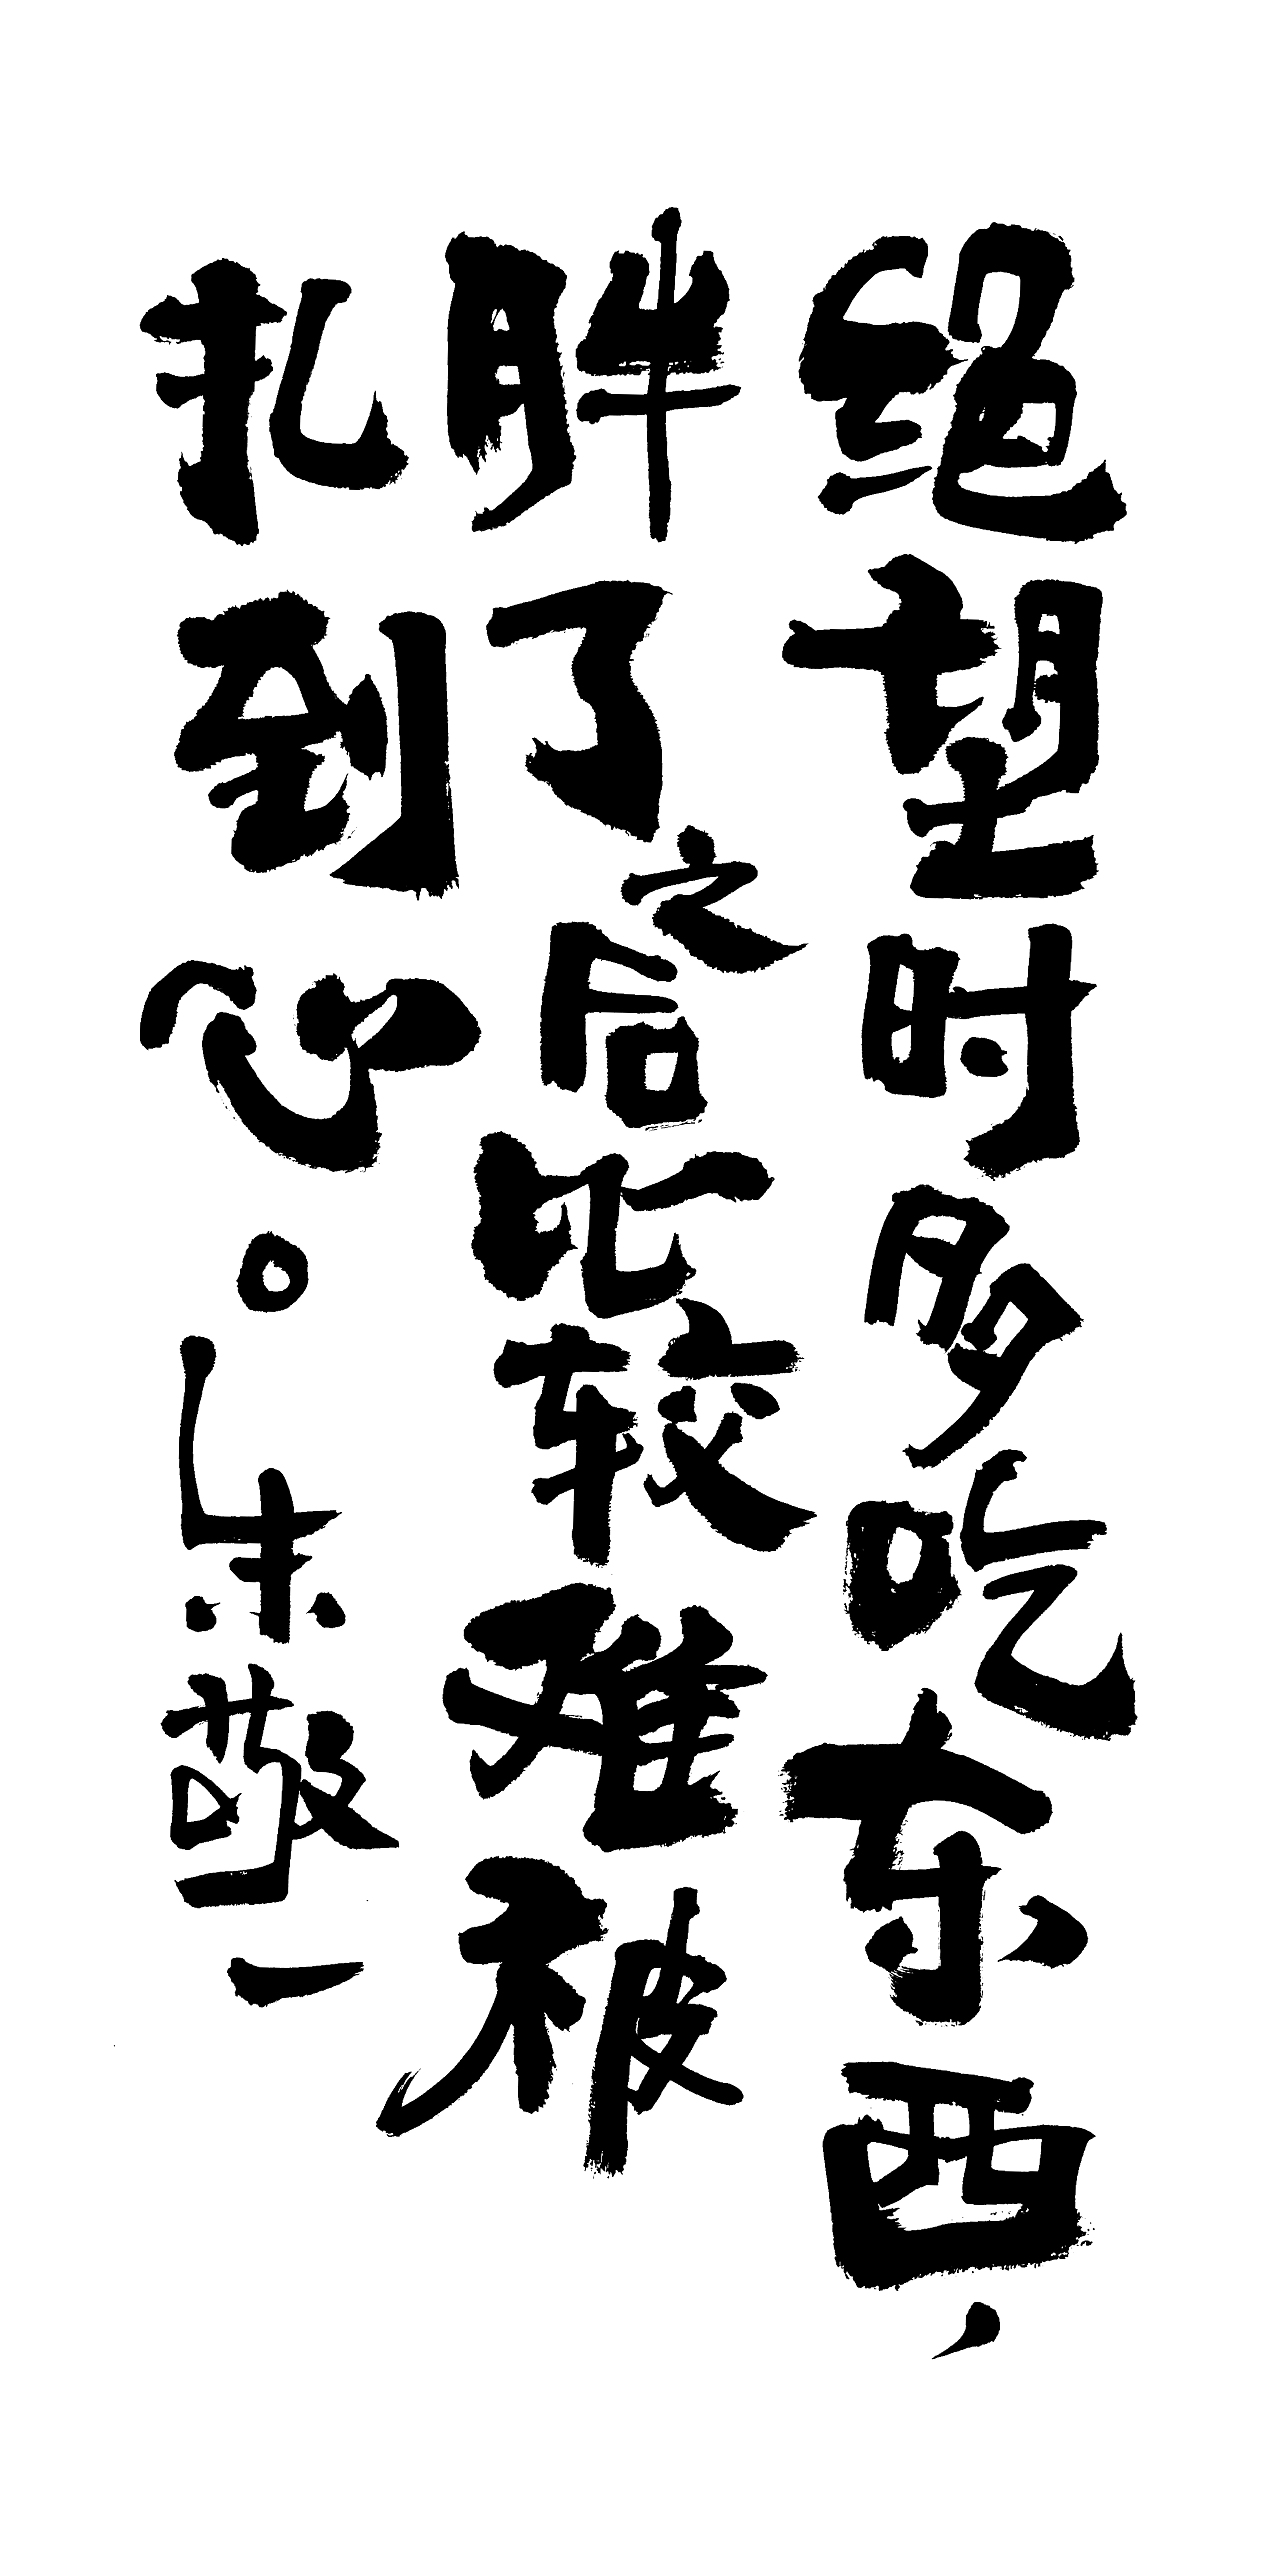 绝望时多吃东西，
胖了之后比较难被
扎到心。朱敬一